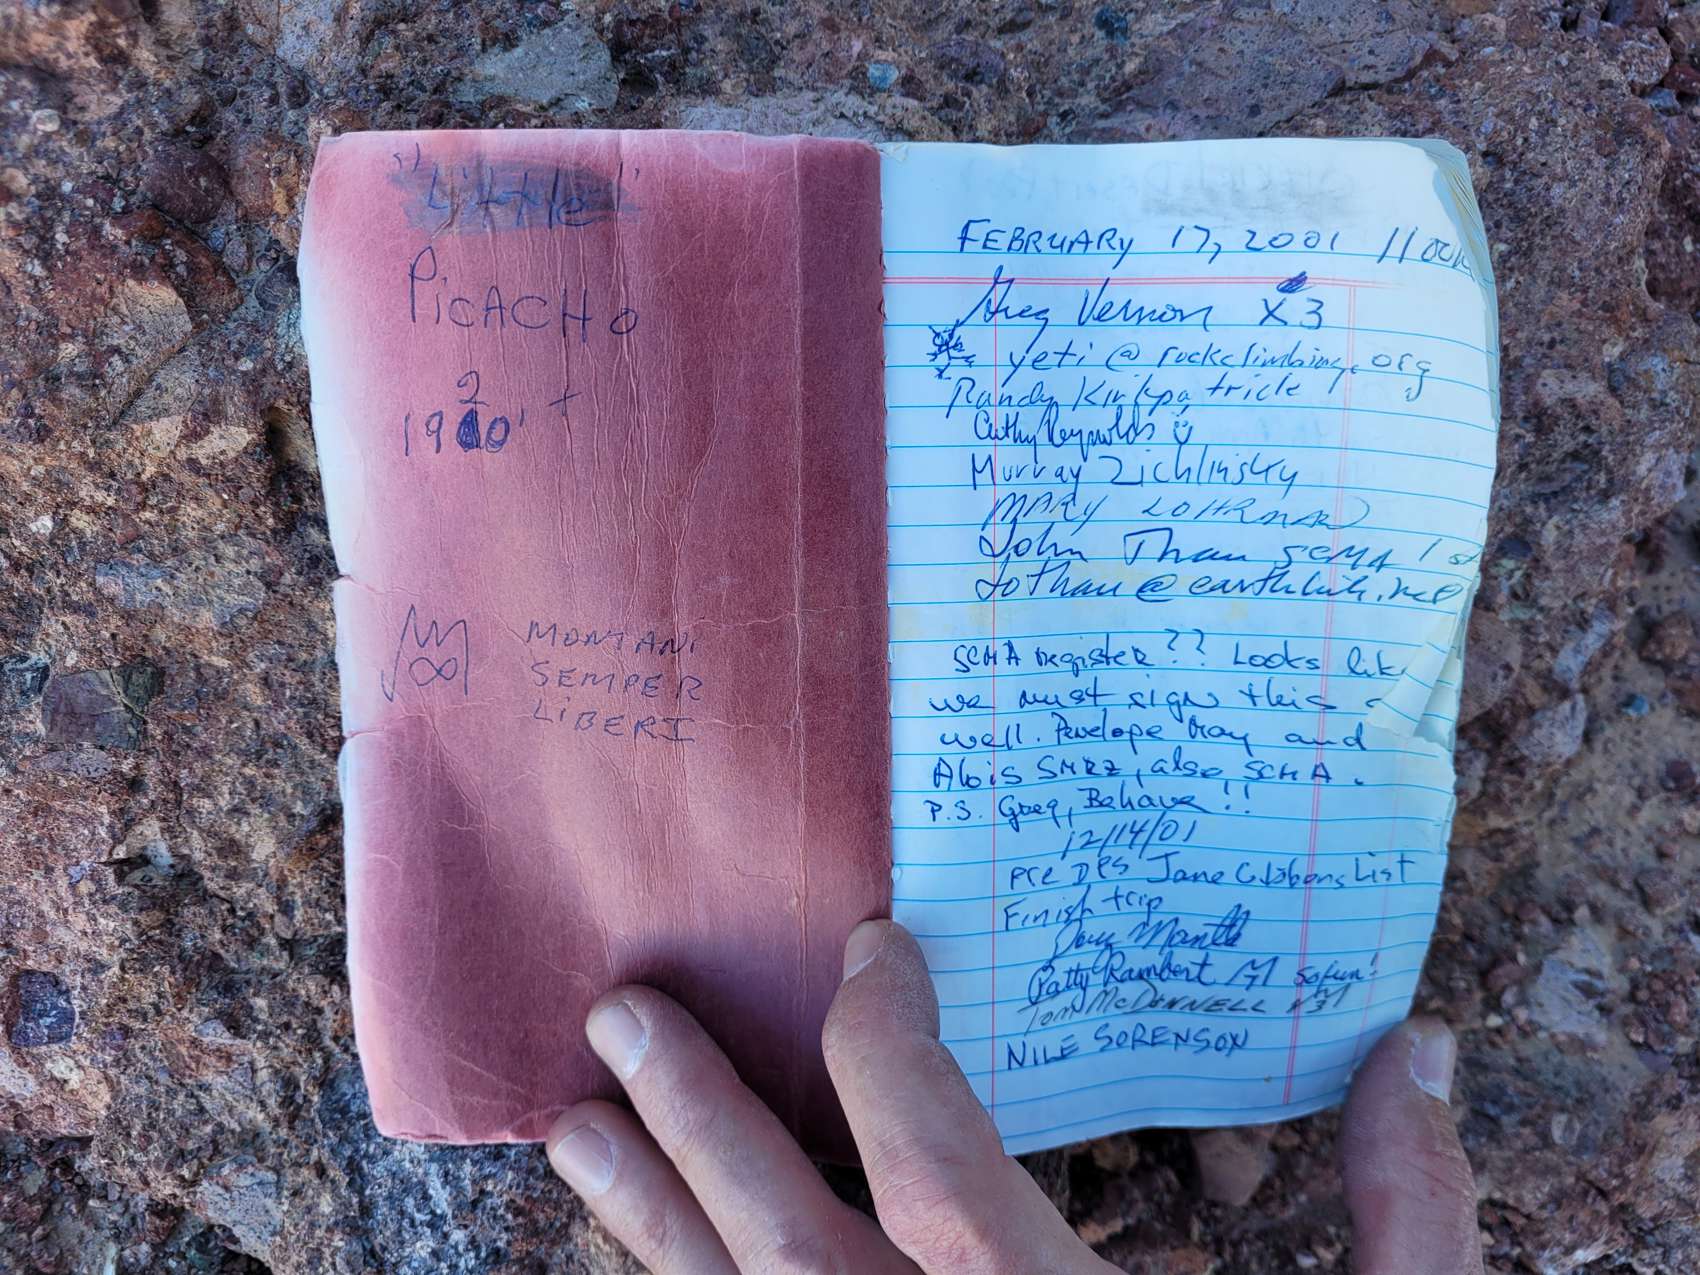 "Little"
PiCACHO
1920' +
MONTANI
SEMPER
LIBERI
FEBRUARY 17, 2001 11
Greg Vernon X3
yeti @ rockclimbing.org
Randy Kirkpatrick
Cathy Reynolds
Murray Zichlinsky
MARY LOHRMAN
John Thau SCMA 1st
Jothau@earthlink.net
SCMA register?? Looks like
we must sign this
well. Penelope May and
Alois SMRZ, also SCMA.
P.S. Greg, Behave!!
12/14/01
Pre DPS Jane Gibbons List
Finish trip
Doug Mantle
Patty Rambert So fun!
Tom McDonnell
NILE SORENSON